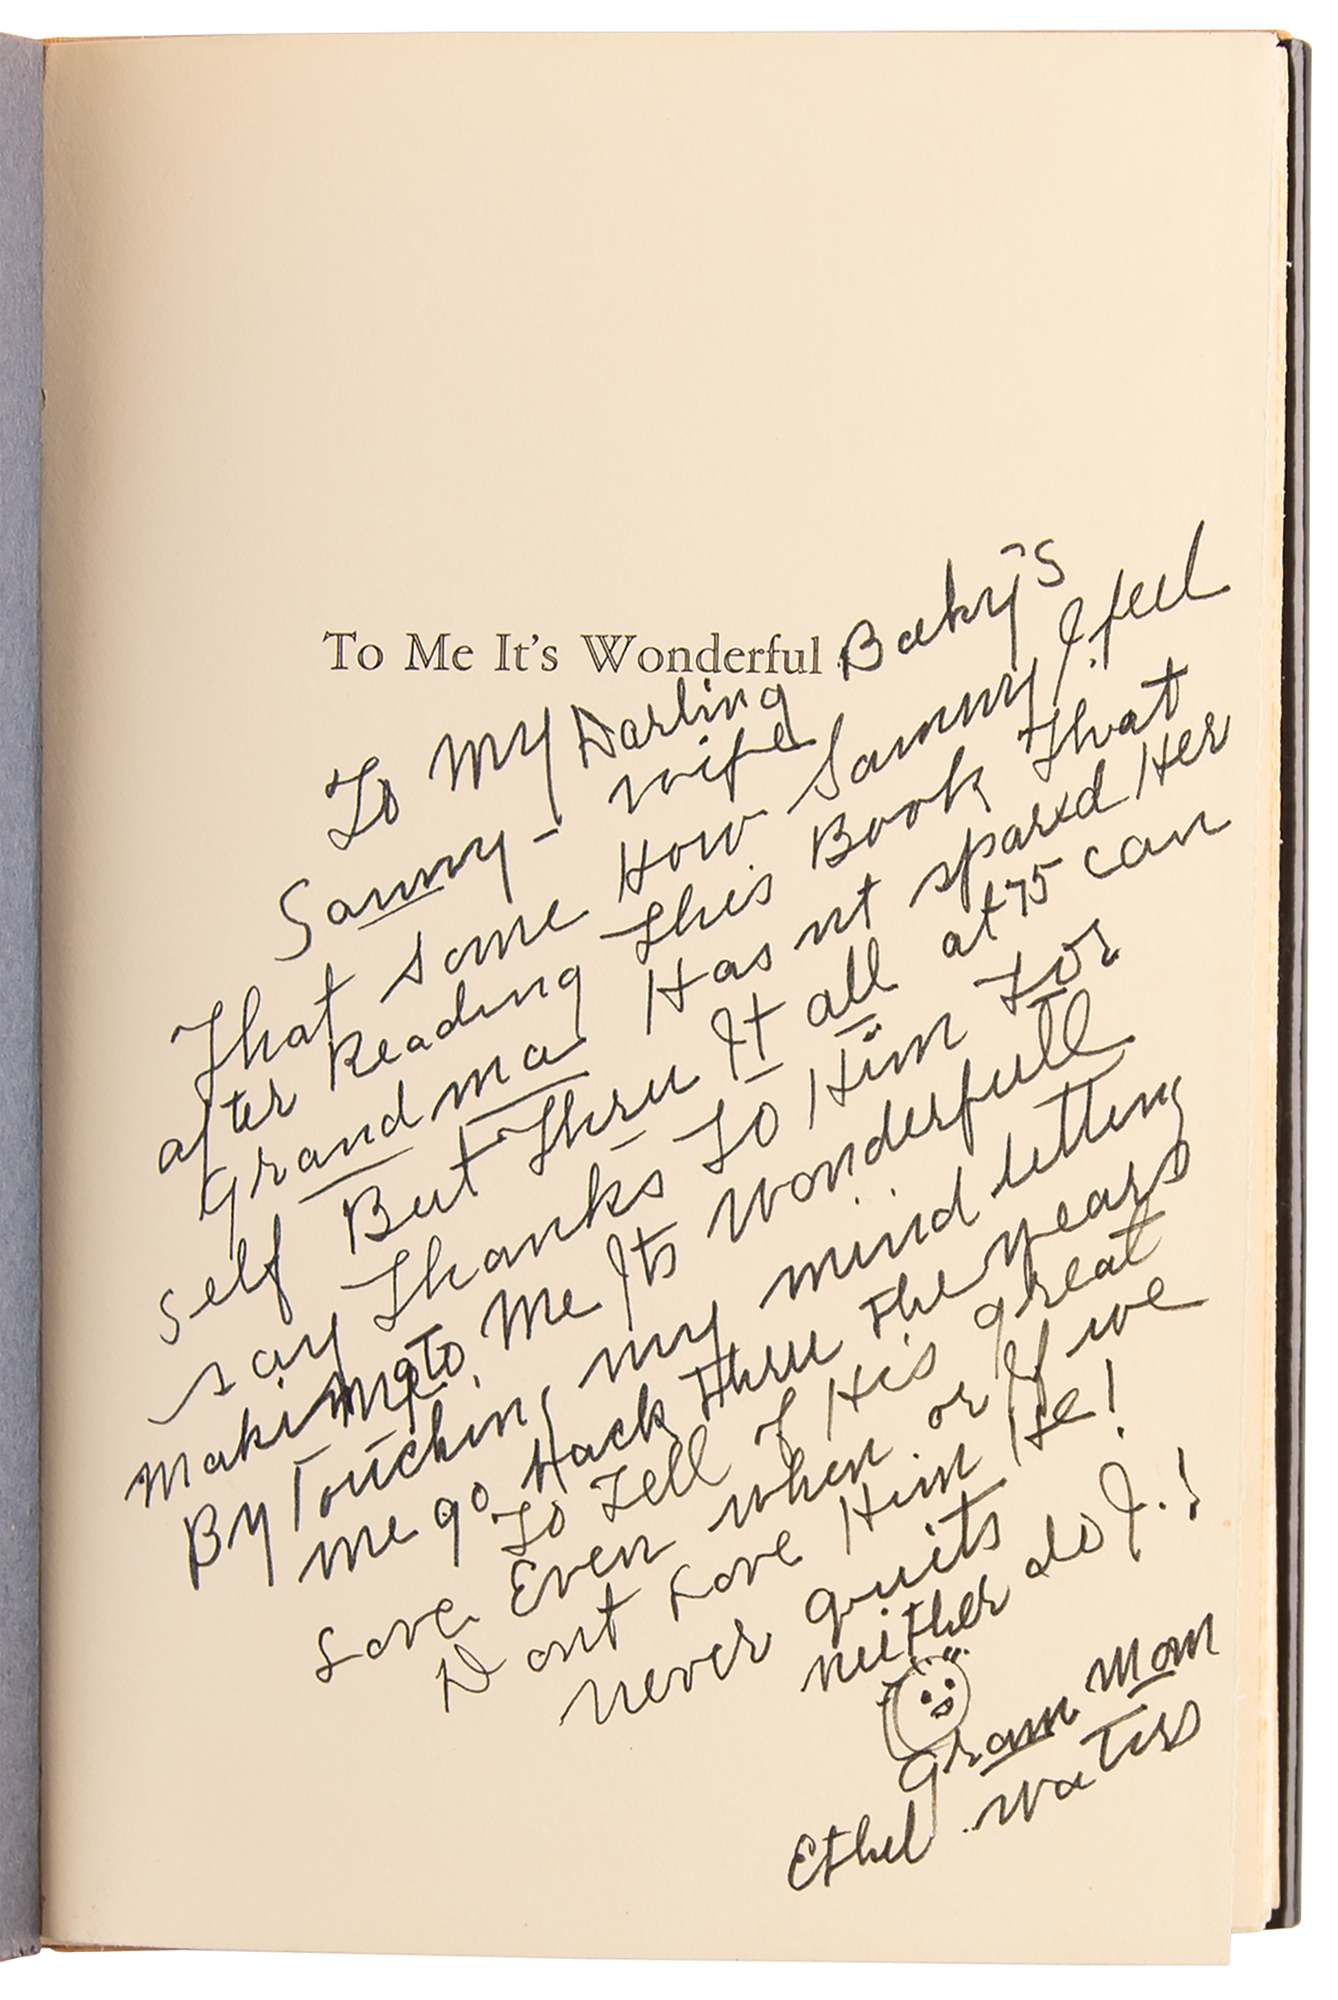 To Me It's Wonderful
To My Darling Baby's
Sammy - wife
That some How Sammy I feel
after Reading This Book That
Grandma Has nt spared Her
self But Thru It all at 75 can
say Thanks To Him For
making to Me Its Wonderfull
By Touching my mind letting
me go Back Thru The years
To Tell of His great
Love. Even when or If we
Dont Love Him He!
never quits
neither do I.!
Gram Mom
Ethel Waters